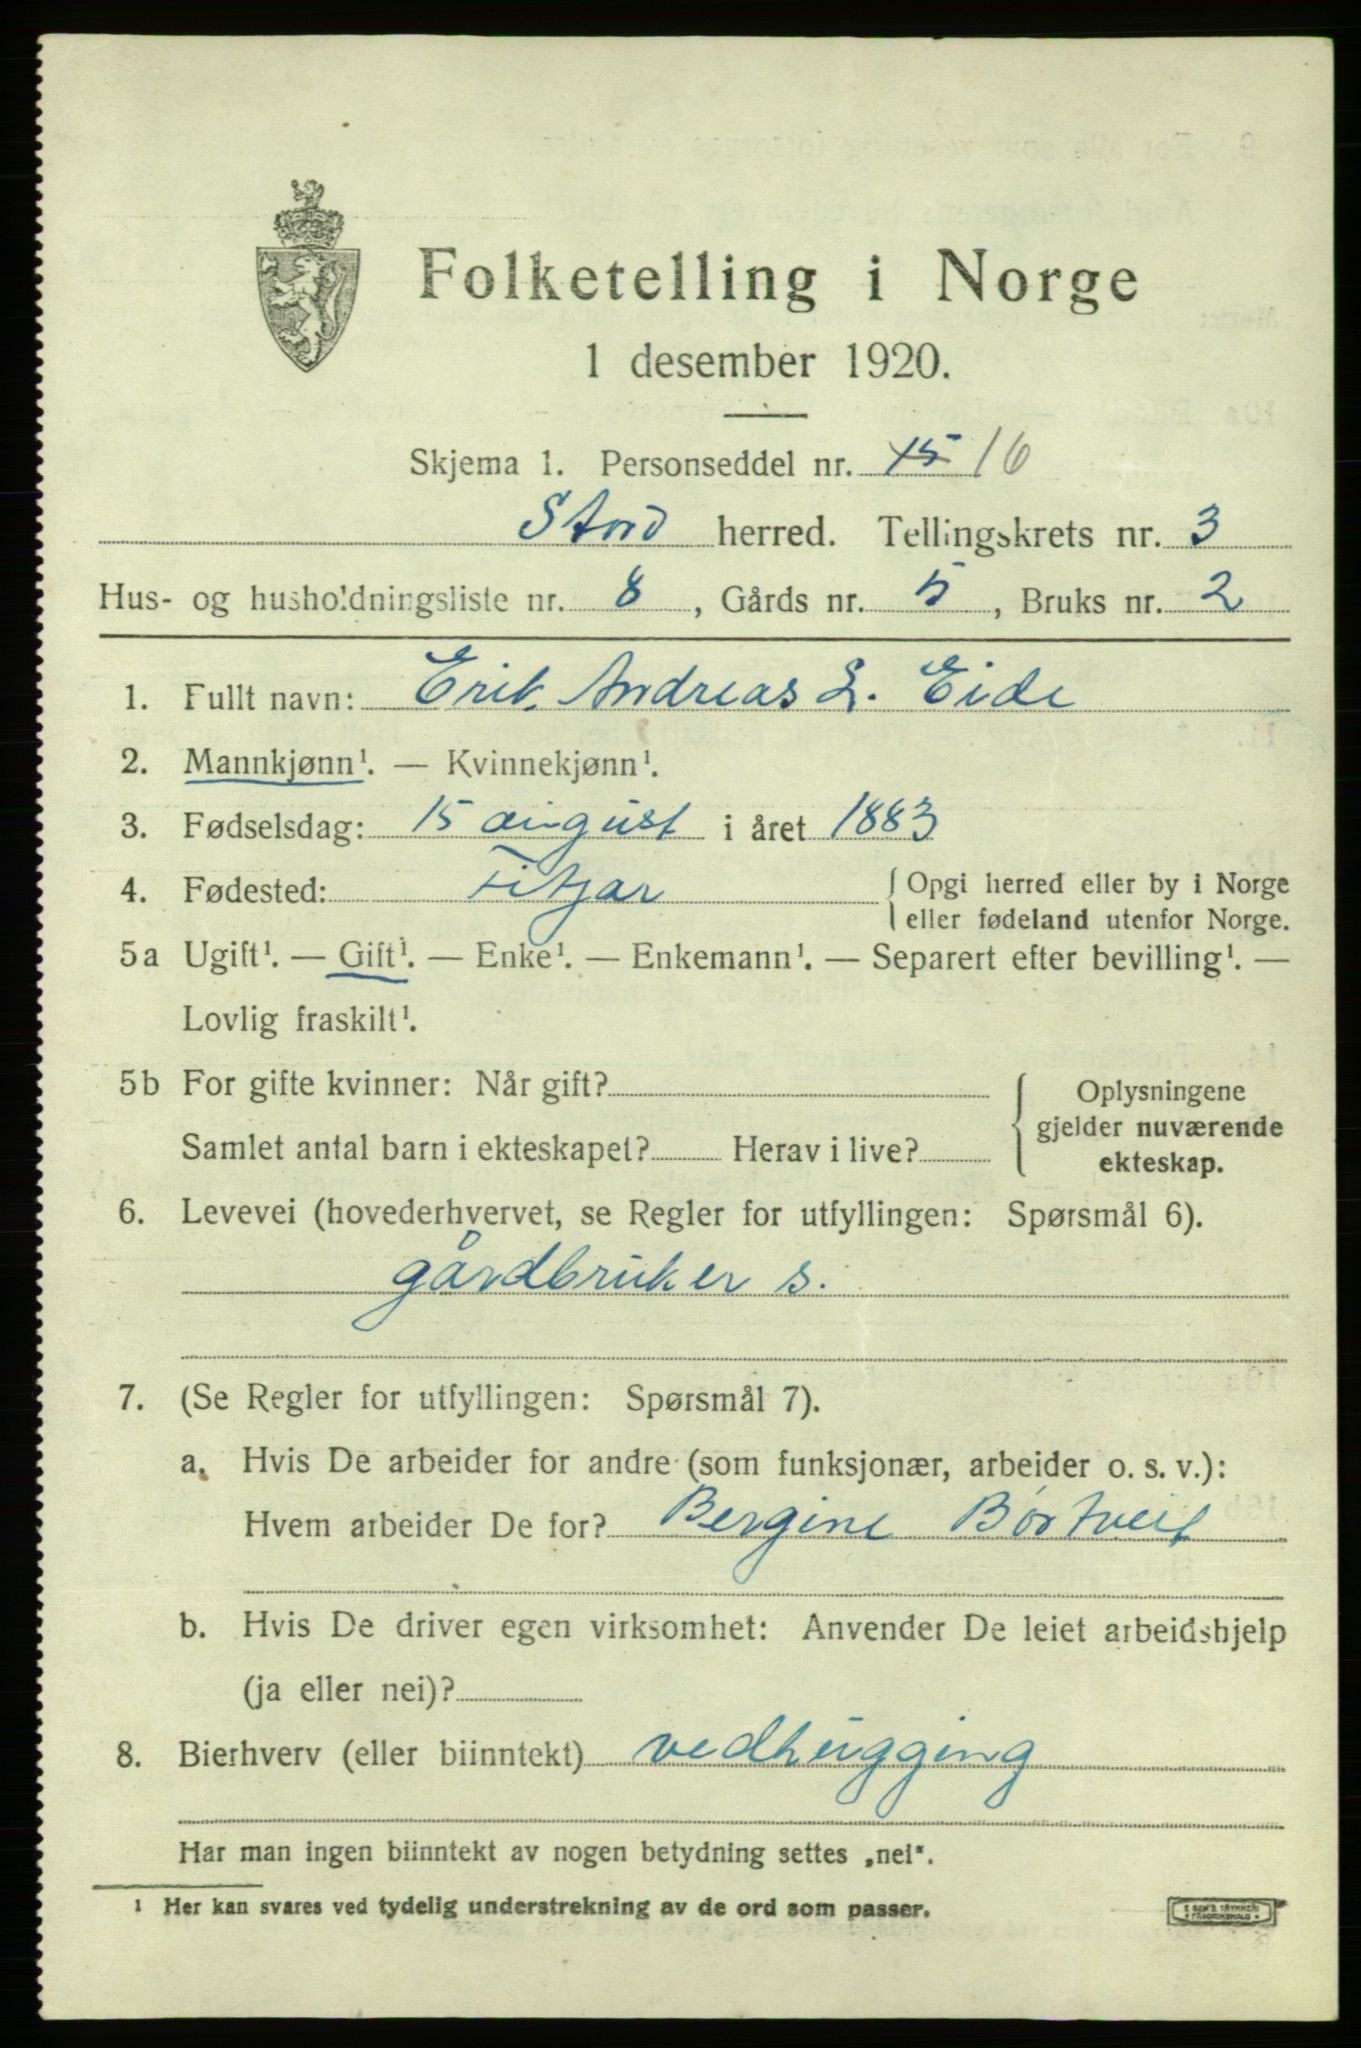 Folketelling i Norge
1 desember 1920.
Skjema 1. Personseddel nr. 15 16
Stord herred. Tellingskrets nr. 3
Hus- og husholdningsliste nr. 8, Gårds nr. 5, Bruks nr. 2
1. Fullt navn: Erik Andreas L. Eide
2. Mannkjønn¹. — Kvinnekjønn¹.
3. Fødselsdag: 15 august i året 1883
4. Fødested: Fitjar { Opgi herred eller by i Norge
eller fødeland utenfor Norge.
5a Ugift¹. — Gift¹. — Enke¹. — Enkemann¹. — Separert efter bevilling¹. —
Lovlig fraskilt¹.
5b For gifte kvinner: Når gift?
Samlet antal barn i ekteskapet? Herav i live?
{ Oplysningene
gjelder nuværende
ekteskap.
6. Levevei (hovederhvervet, se Regler for utfyllingen: Spørsmål 6).
gårdbruker s.
7. (Se Regler for utfyllingen: Spørsmål 7).
a. Hvis De arbeider for andre (som funksjonær, arbeider o. s. v.):
Hvem arbeider De for? Bergine Børtveit
b. Hvis De driver egen virksomhet: Anvender De leiet arbeidshjelp
(ja eller nei)?
8. Bierhverv (eller biinntekt) vedhugging
Har man ingen biinntekt av nogen betydning settes „nei".
¹ Her kan svares ved tydelig understrekning av de ord som passer.